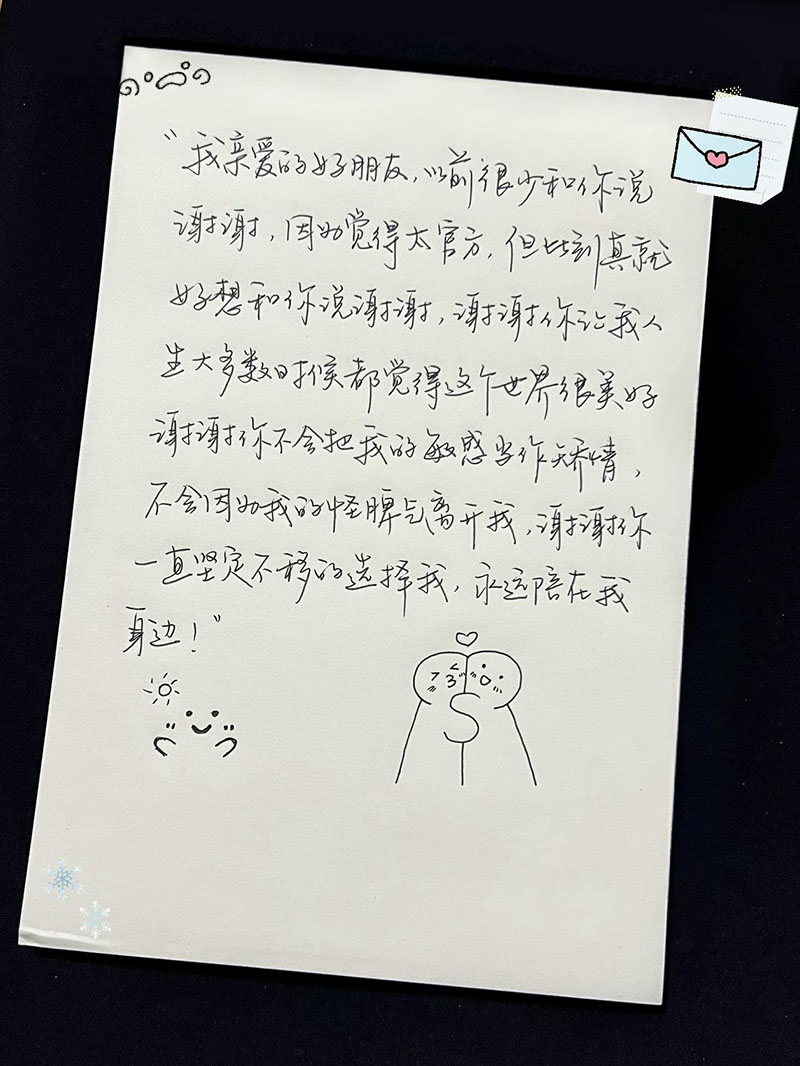 “我亲爱的好朋友,以前很少和你说
谢谢,因为觉得太官方,但此刻真就
好想和你说谢谢,谢谢你让我人
生大多数时候都觉得这个世界很美好
谢谢你不会把我的敏感当作矫情,
不会因为我的怪脾气离开我,谢谢你
一直坚定不移的选择我,永远陪在我
身边!”